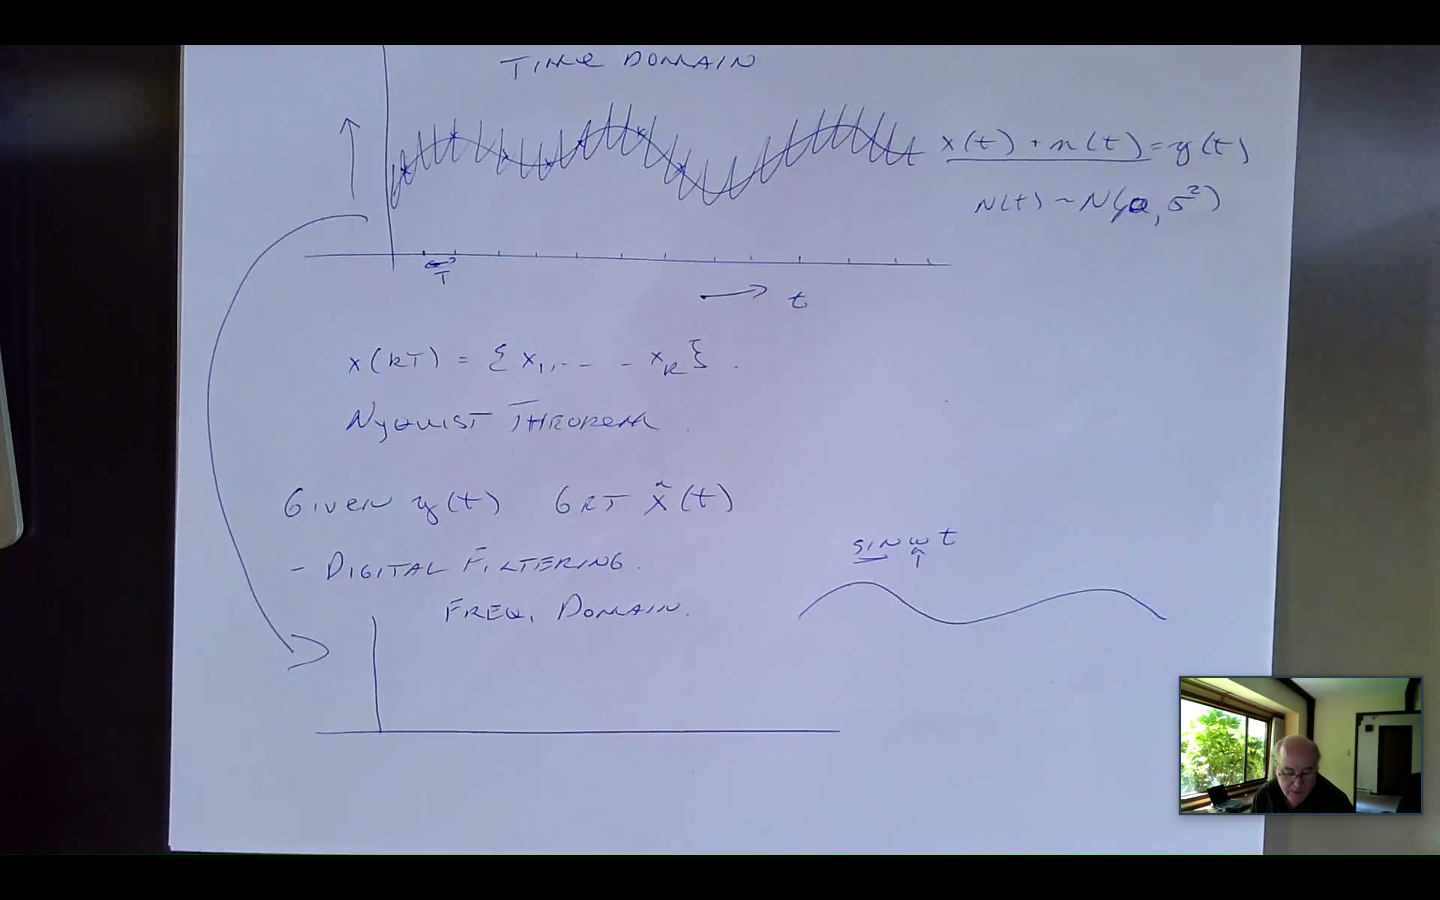 TIME DOMAIN
x(t) + n(t) = y(t)
N(t) ~ N(0, σ²)
T
t
x(kT) = { x₁, . . . - x_k } .
NYQUIST THEOREM
GIVEN y(t) GET x̂(t)
- DIGITAL FILTERING.
sin ω t
FREQ. DOMAIN.